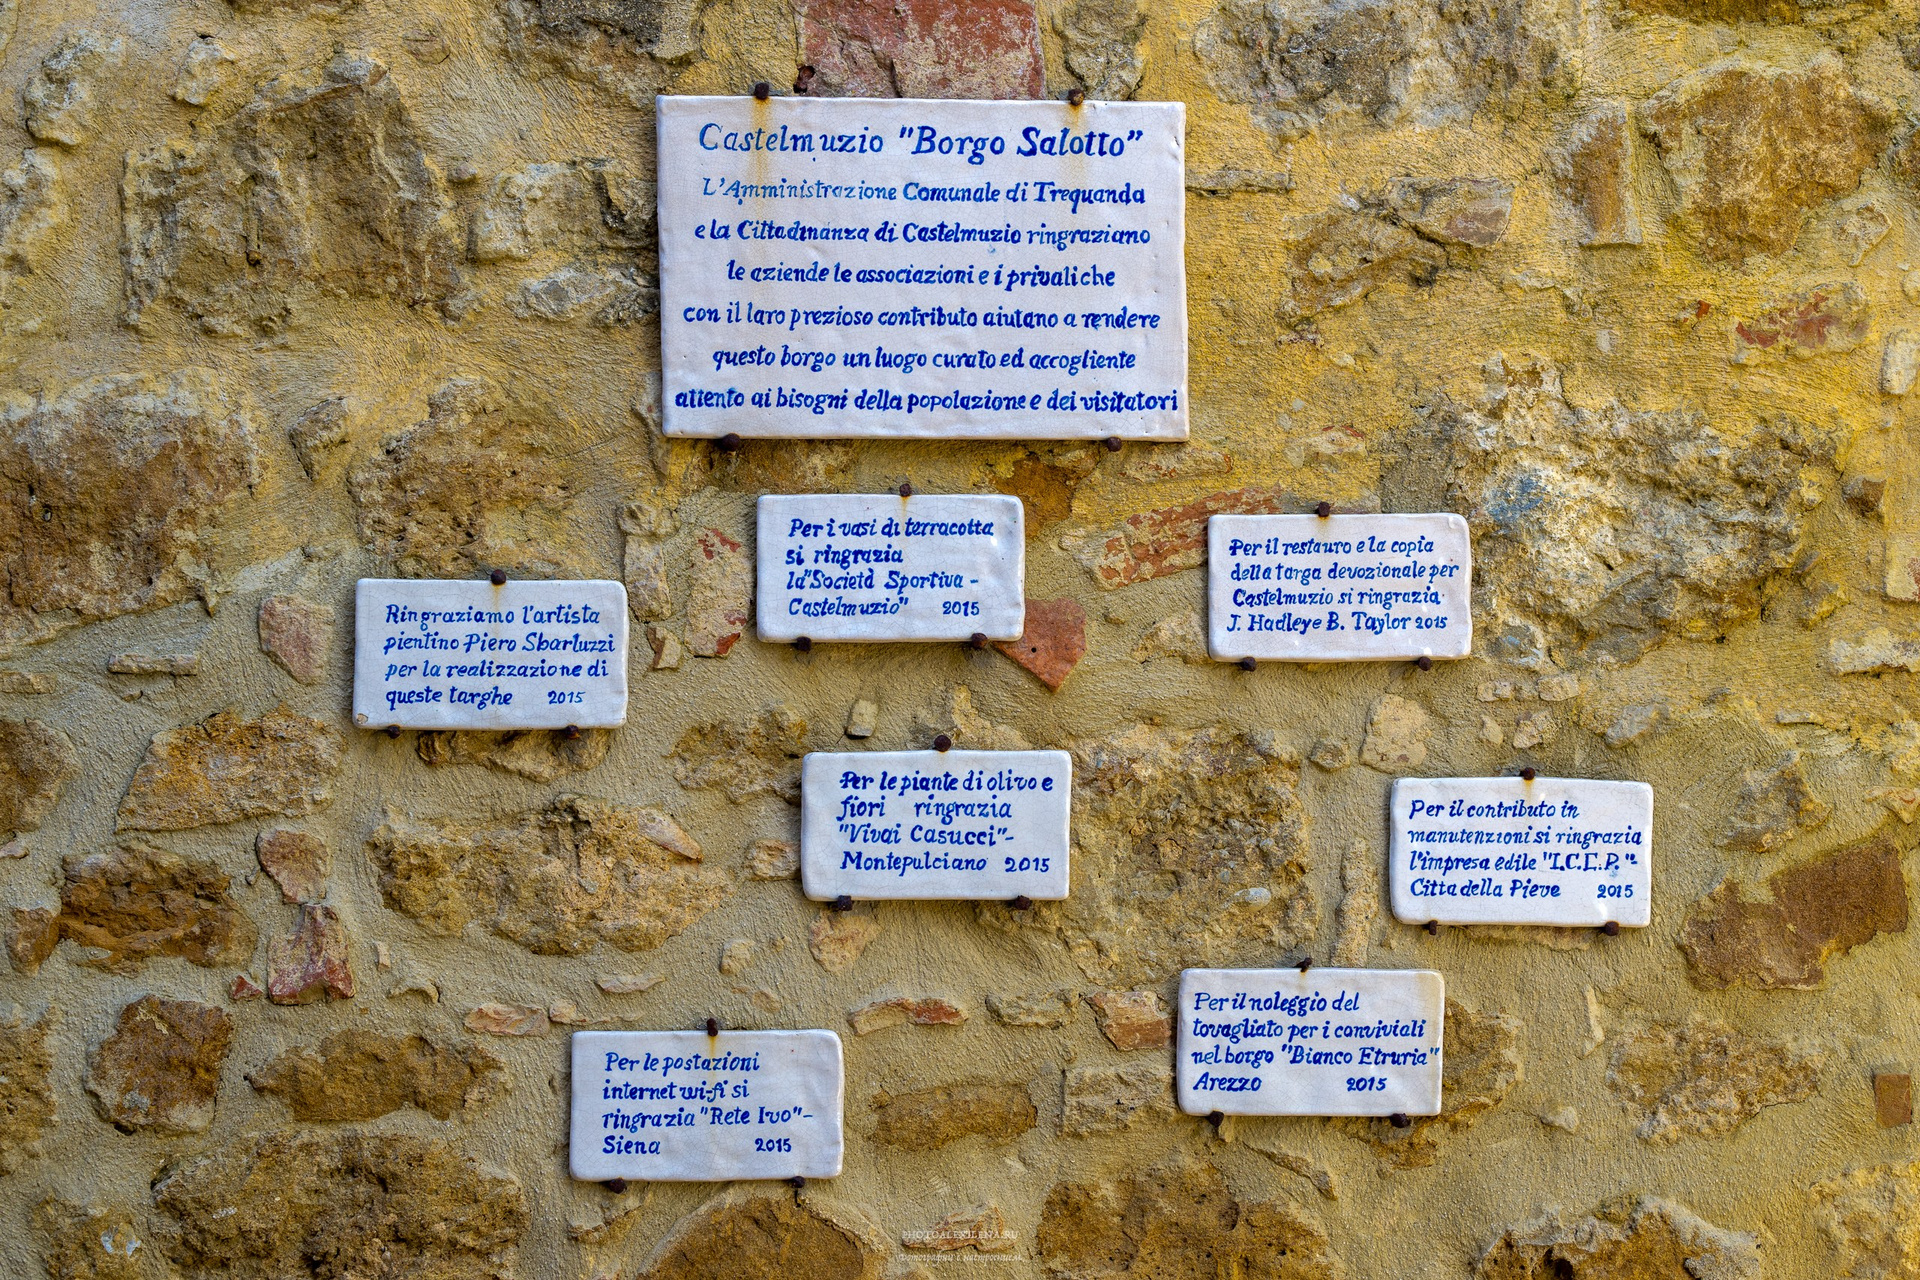 Castelmuzio "Borgo Salotto"
L'Amministrazione Comunale di Trequanda
e la Cittadinanza di Castelmuzio ringraziano
le aziende le associazioni e i privati che
con il loro prezioso contributo aiutano a rendere
questo borgo un luogo curato ed accogliente
attento ai bisogni della popolazione e dei visitatori
Per i vasi di terracotta
si ringrazia
la "Società Sportiva -
Castelmuzio" 2015
Per il restauro e la copia
della targa devozionale per
Castelmuzio si ringrazia
J. Hadley e B. Taylor 2015
Ringraziamo l'artista
pientino Piero Sbarluzzi
per la realizzazione di
queste targhe 2015
Per le piante di olivo e
fiori ringrazia
"Vivai Casucci"-
Montepulciano 2015
Per il contributo in
manutenzioni si ringrazia
l'impresa edile "I.C.E.P."-
Citta della Pieve 2015
Per il noleggio del
tovagliato per i conviviali
nel borgo "Bianco Etruria"
Arezzo 2015
Per le postazioni
internet wi-fi si
ringrazia "Rete Ivo"-
Siena 2015
PHOTOALEXILENA.RU